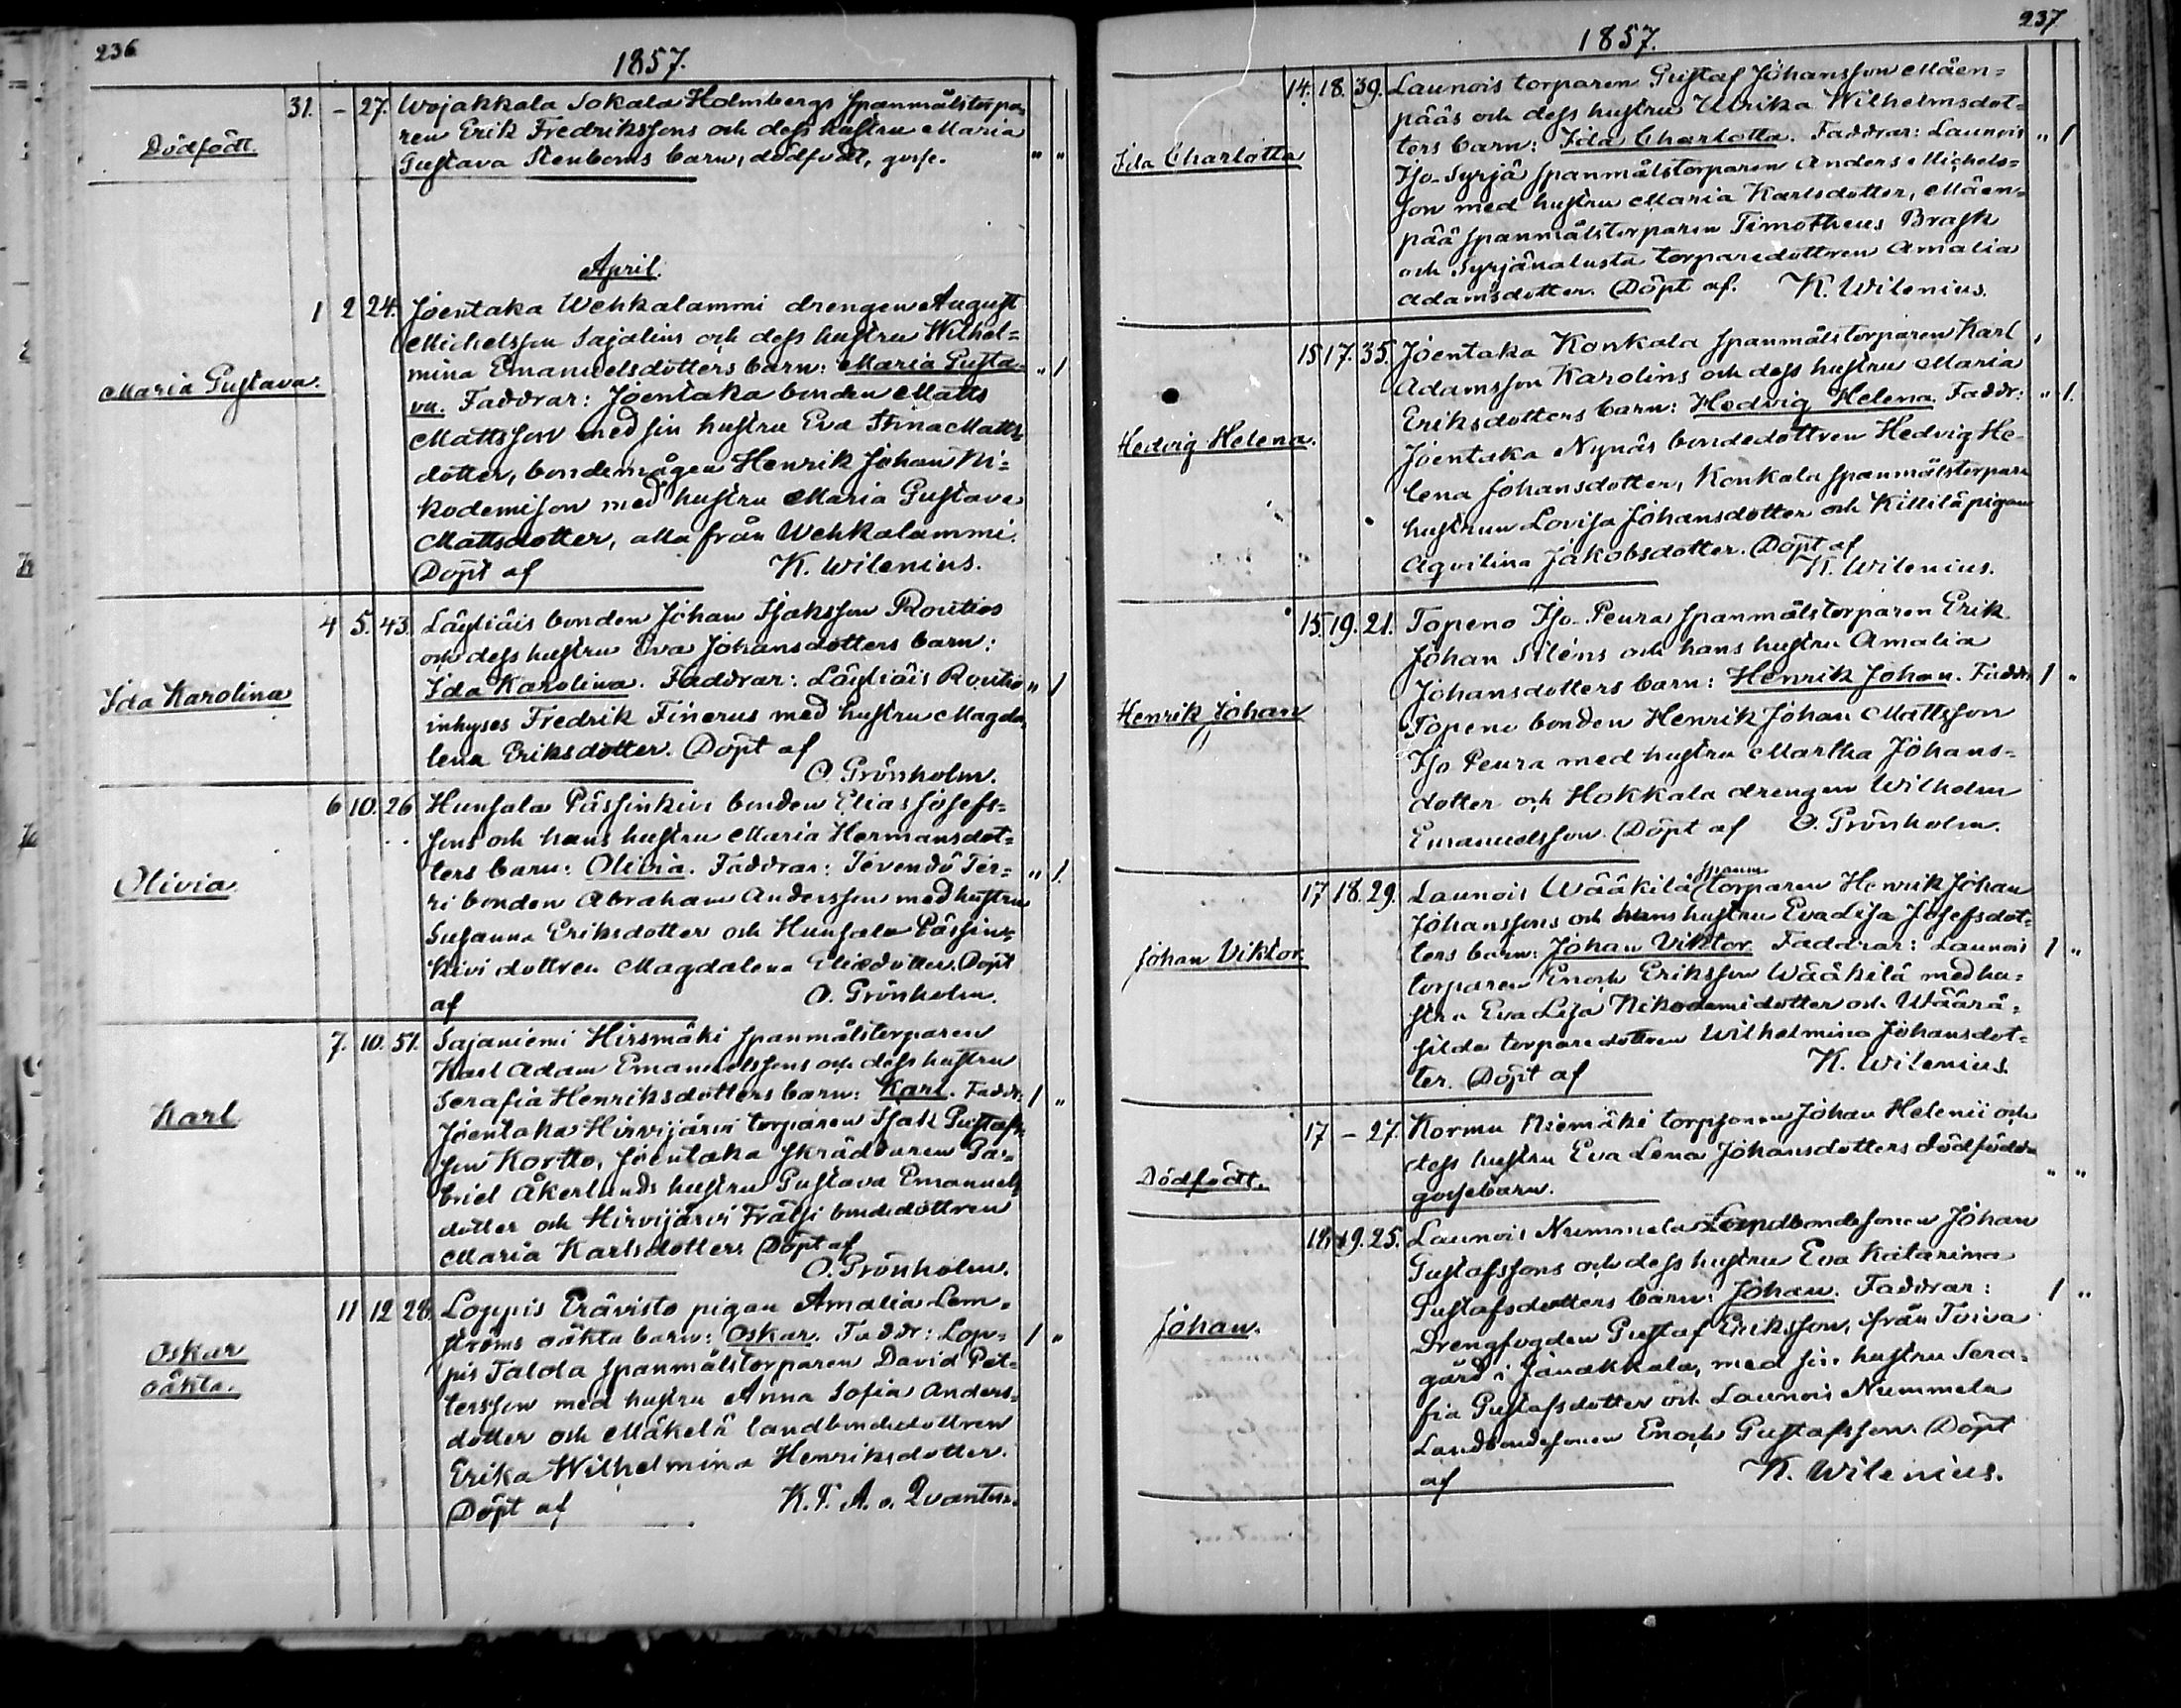 236
1857.
Dödfödt.
31. – 27. Wojakkala Sokala Holmbergs spanmålstorpa=
ren Erik Fredrikssons och dess hustru Maria
Gustava Stenboms barn, dödfödt, gosse. " "
April.
Maria Gustava.
1 2 24. Joentaka Wehkalammi drengen August
Michelsson Sajalins och dess hustru Wilhel=
mina Emanuelsdotters barn: Maria Gusta= " 1
va. Faddrar: Joentaka bonden Matts
Mattsson med sin hustru Eva Stina Matts=
dotter, bondemågen Henrik Johan Ni=
kodemison med hustru Maria Gustava
Mattsdotter, alla från Wehkalammi.
Döpt af K. Wilenius.
Ida Karolina
4 5. 43. Läyliäis bonden Johan Isaksson Routios
och dess hustru Eva Johansdotters barn:
Ida Karolina. Faddrar: Läyliäis Routio " 1
inhyses Fredrik Finerus med hustru Magda=
lena Eriksdotter. Döpt af
O. Grönholm.
Olivia.
6 10. 26 Hunsala Pässinkivi bonden Elias Josefs=
sons och hans hustru Maria Hermansdot=
ters barn: Olivia. Faddrar: Tevendö Ter= " 1.
ri bonden Abraham Andersson med hustru
Susanna Eriksdotter och Hunsala Pässin=
kivi dottren Magdalena Eliedotter. Döpt
af O. Grönholm.
Karl
7. 10. 51. Sajaniemi Hirsmäki spanmålstorparen
Karl Adam Emanuelssons och dess hustru
Serafia Henriksdotters barn: Karl. Faddr: 1 "
Joentaka Hirvijärvi torparen Isak Gustafs=
son Kortto, Joentaka skräddaren Ga=
briel Åkerlunds hustru Gustava Emanuels
dotter och Hirvijärvi Frätsi bondedottren
Maria Karlsdotter. Döpt af
O. Grönholm.
Oskar
oäkta.
11 12 28. Loppis Erävisto pigan Amalia Lem=
ströms oäkta barn: Oskar. Faddr: Lop= 1 "
pis Talola spanmålstorparen David Pet=
tersson med hustru Anna Sofia Anders=
dotter och Mäkelä landbondedottren
Erika Wilhelmina Henriksdotter.
Döpt af K. F. A. v. Qvanten.
237
1857.
Ida Charlotta
14. 18. 39. Launois torparen Gustaf Johansson Mäen=
pääs och dess hustru Ulrika Wilhelmsdot=
ters barn: Ida Charlotta. Faddrar: Launois " 1
Iso-Syrjä spanmålstorparen Anders Michels=
son med hustru Maria Karlsdotter, Mäen=
pää spanmålstorparen Timotheus Brask
och Syrjänalusta torparedottren Amalia
Adamsdotter. Döpt af. K. Wilenius.
Hedvig Helena.
15 17. 35. Joentaka Konkala spanmålstorparen Karl
Adamsson Karolins och dess hustru Maria
Eriksdotters barn: Hedvig Helena. Faddr: " 1.
Joentaka Nynäs bondedottren Hedvig He=
lena Johansdotter, Konkala spanmålstorpare
hustrun Lovisa Johansdotter och Killilä pigan
Aqvilina Jakobsdotter. Döpt af
K. Wilenius.
Henrik Johan
15. 19. 21. Topeno Iso-Peura spanmålstorparen Erik
Johan Siléns och hans hustru Amalia
Johansdotters barn: Henrik Johan. Faddr: 1 "
Topeno bonden Henrik Johan Mattsson
Iso Peura med hustru Martha Johans=
dotter och Hokkala drengen Wilhelm
Emanuelsson. Döpt af O. Grönholm.
Johan Viktor.
spanm
17 18. 29. Launois Wääkilä torparen Henrik Johan
Johanssons och hans hustru Eva Lisa Josefsdot=
ters barn: Johan Viktor. Faddrar: Launois 1 "
torparen Enoch Eriksson Wääkilä med hu=
stru Eva Lisa Nikodemidotter och Wäärä=
silda torparedottren Wilhelmina Johansdot=
ter. Döpt af K. Wilenius.
Dödfödt.
17 – 27. Kormu Niemäki torpsonen Johan Helenii och
dess hustru Eva Lena Johansdotters dödfödda
gossebarn. " "
Johan.
18. 19. 25. Launois Nummela Landbondesonen Johan
Gustafssons och dess hustru Eva Katarina
Gustafsdotters barn: Johan. Faddrar: 1 "
Drengfogden Gustaf Eriksson, ifrån Toiva
gård i Janakkala, med sin hustru Sera=
fia Gustafsdotter och Launois Nummela
Landbondesonen Enoch Gustafsson. Döpt
af K. Wilenius.